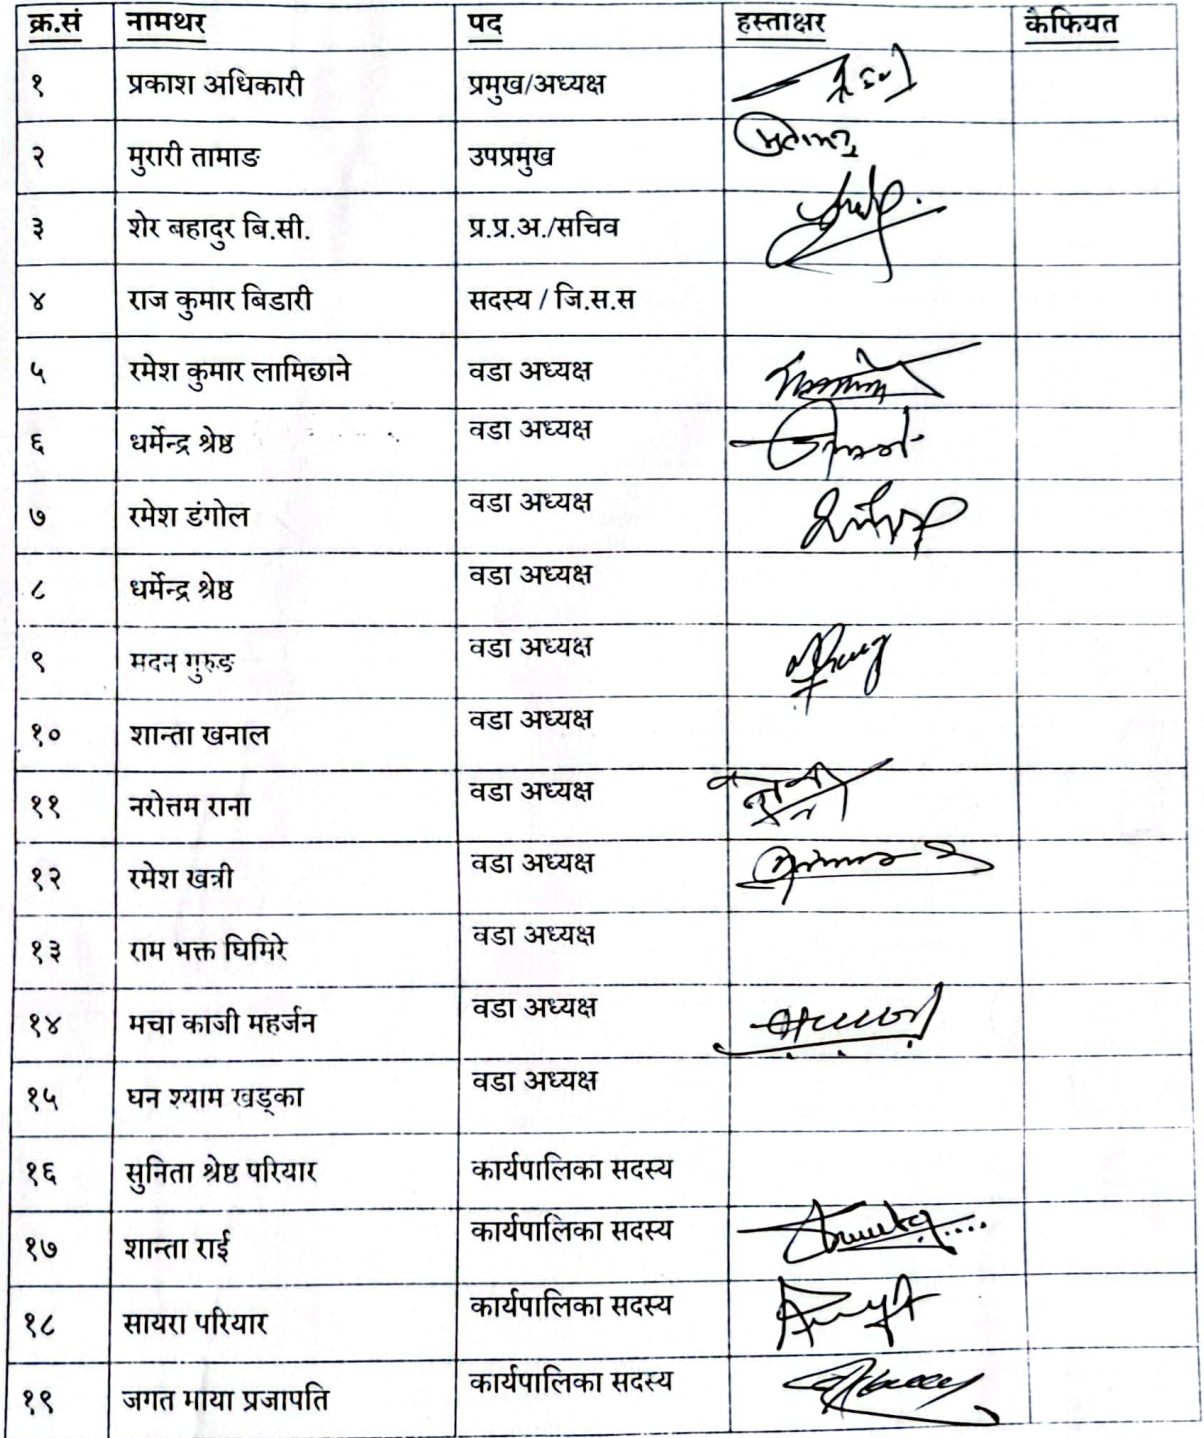 क्र.सं नामथर पद हस्ताक्षर कैफियत
१ प्रकाश अधिकारी प्रमुख/अध्यक्ष
२ मुरारी तामाङ उपप्रमुख
३ शेर बहादुर बि.सी. प्र.प्र.अ./सचिव
४ राज कुमार बिडारी सदस्य / जि.स.स
५ रमेश कुमार लामिछाने वडा अध्यक्ष
६ धर्मेन्द्र श्रेष्ठ वडा अध्यक्ष
७ रमेश डंगोल वडा अध्यक्ष
८ धर्मेन्द्र श्रेष्ठ वडा अध्यक्ष
९ मदन गुरुङ वडा अध्यक्ष
१० शान्ता खनाल वडा अध्यक्ष
११ नरोत्तम राना वडा अध्यक्ष
१२ रमेश खत्री वडा अध्यक्ष
१३ राम भक्त घिमिरे वडा अध्यक्ष
१४ मचा काजी महर्जन वडा अध्यक्ष
१५ घन श्याम खड्का वडा अध्यक्ष
१६ सुनिता श्रेष्ठ परियार कार्यपालिका सदस्य
१७ शान्ता राई कार्यपालिका सदस्य
१८ सायरा परियार कार्यपालिका सदस्य
१९ जगत माया प्रजापति कार्यपालिका सदस्य